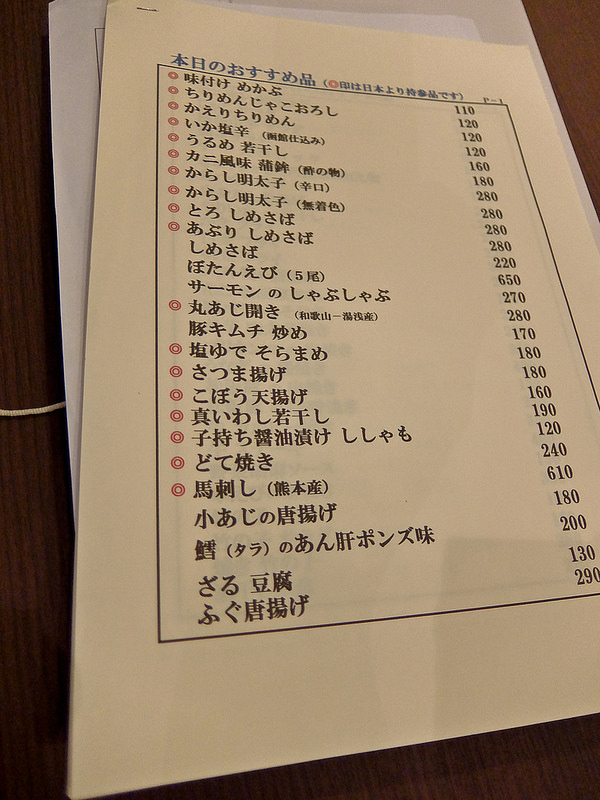 本日のおすすめ品（◎印は日本より持参品です） P-1
◎ 味付け めかぶ 110
◎ ちりめんじゃこおろし 120
◎ かえりちりめん 120
◎ いか塩辛（函館仕込み） 120
◎ うるめ 若干し 160
◎ カニ風味 蒲鉾（酢の物） 180
◎ からし明太子（辛口） 280
◎ からし明太子（無着色） 280
◎ とろ しめさば 280
◎ あぶり しめさば 280
しめさば 220
ぼたんえび（５尾） 650
サーモン の しゃぶしゃぶ 270
◎ 丸あじ開き（和歌山－湯浅産） 280
豚キムチ 炒め 170
◎ 塩ゆで そらまめ 180
◎ さつま揚げ 180
◎ こぼう天揚げ 160
◎ 真いわし若干し 190
◎ 子持ち醤油漬け ししゃも 120
◎ どて焼き 240
◎ 馬刺し（熊本産） 610
小あじの唐揚げ 180
鱈（タラ）のあん肝ポンズ味 200
ざる 豆腐 130
ふぐ唐揚げ 290